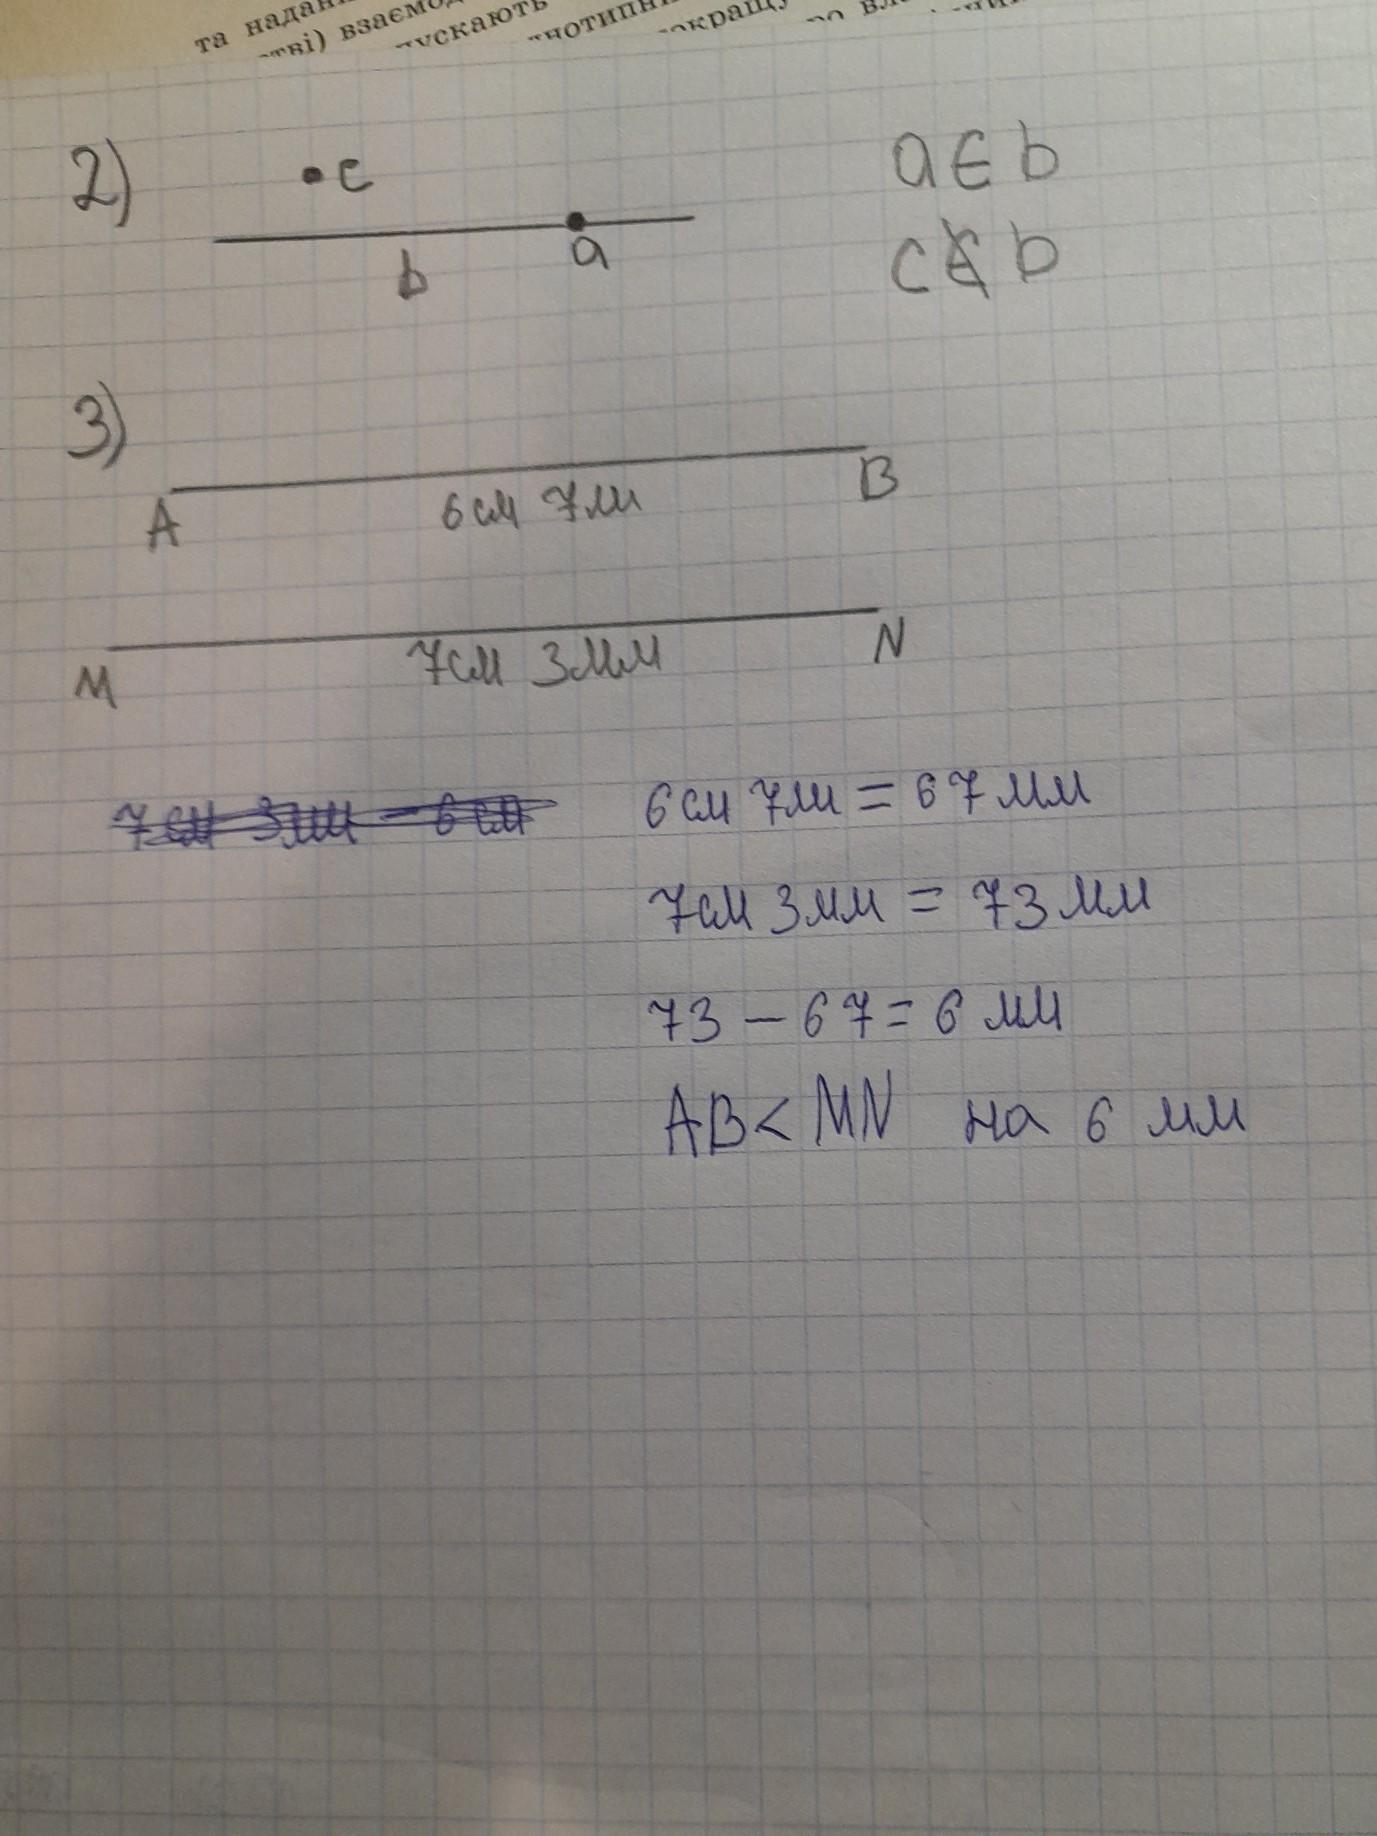 та надан
стві) взаємод
пускають
нотипн
окращу
2)
• c
a ∈ b
b
a
c ∉ b
3)
A
6см 7мм
B
M
7см 3мм
N
6см 7мм = 67мм
7см 3мм = 73мм
73 - 67 = 6 мм
AB < MN на 6 мм